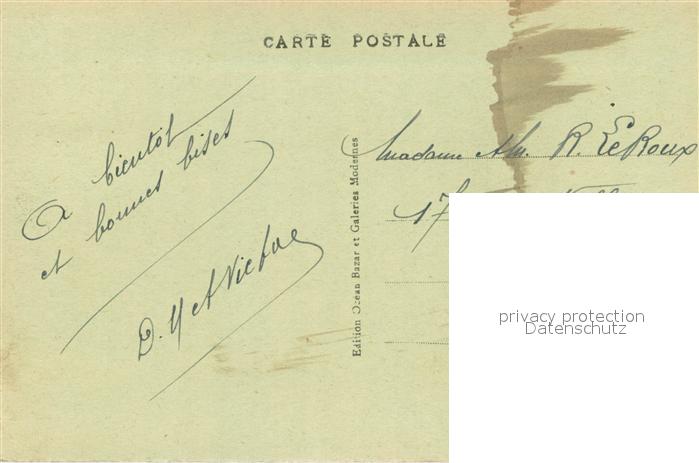 CARTE POSTALE
A bientôt
et bonnes bises
D. Y et Victor
Edition Océan Bazar et Galeries Modernes
Madame R. Le Roux
17
privacy protection
Datenschutz